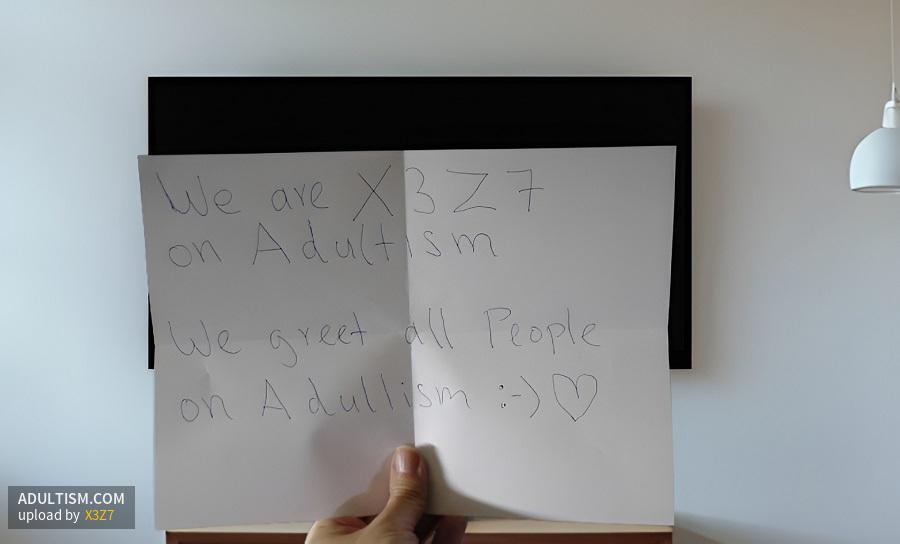 We are X3Z7
on Adultism
We greet all People
on Adullism :-) ♡
ADULTISM.COM
upload by X3Z7